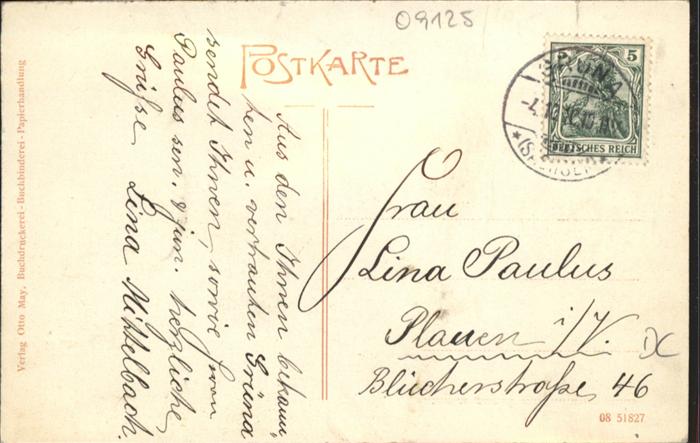 09125
POSTKARTE
5
DEUTSCHES REICH
GRÜNA
(SACHSEN)
Aus den Ihnen bekann,
ten u. vertrauten Gründ
sendet Ihnen, sowie Herrn
Paulus sen. & jun. herzliche
Grüße Lina Mittelbach.
Frau
Lina Paulus
Plauen i/V.
Blücherstraße 46
08 51827
Verlag Otto May, Buchdruckerei - Buchbinderei - Papierhandlung